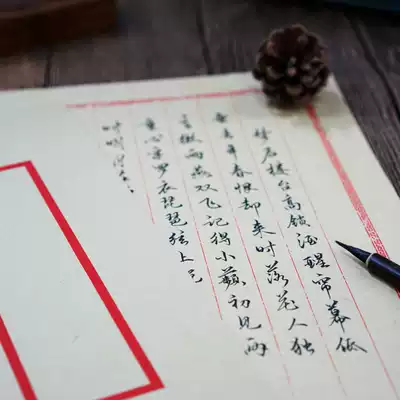 梦后楼台高锁酒醒帘幕低
垂去年春恨却来时落花人独
立微雨燕双飞记得小蘋初见两
重心字罗衣琵琶弦上
时